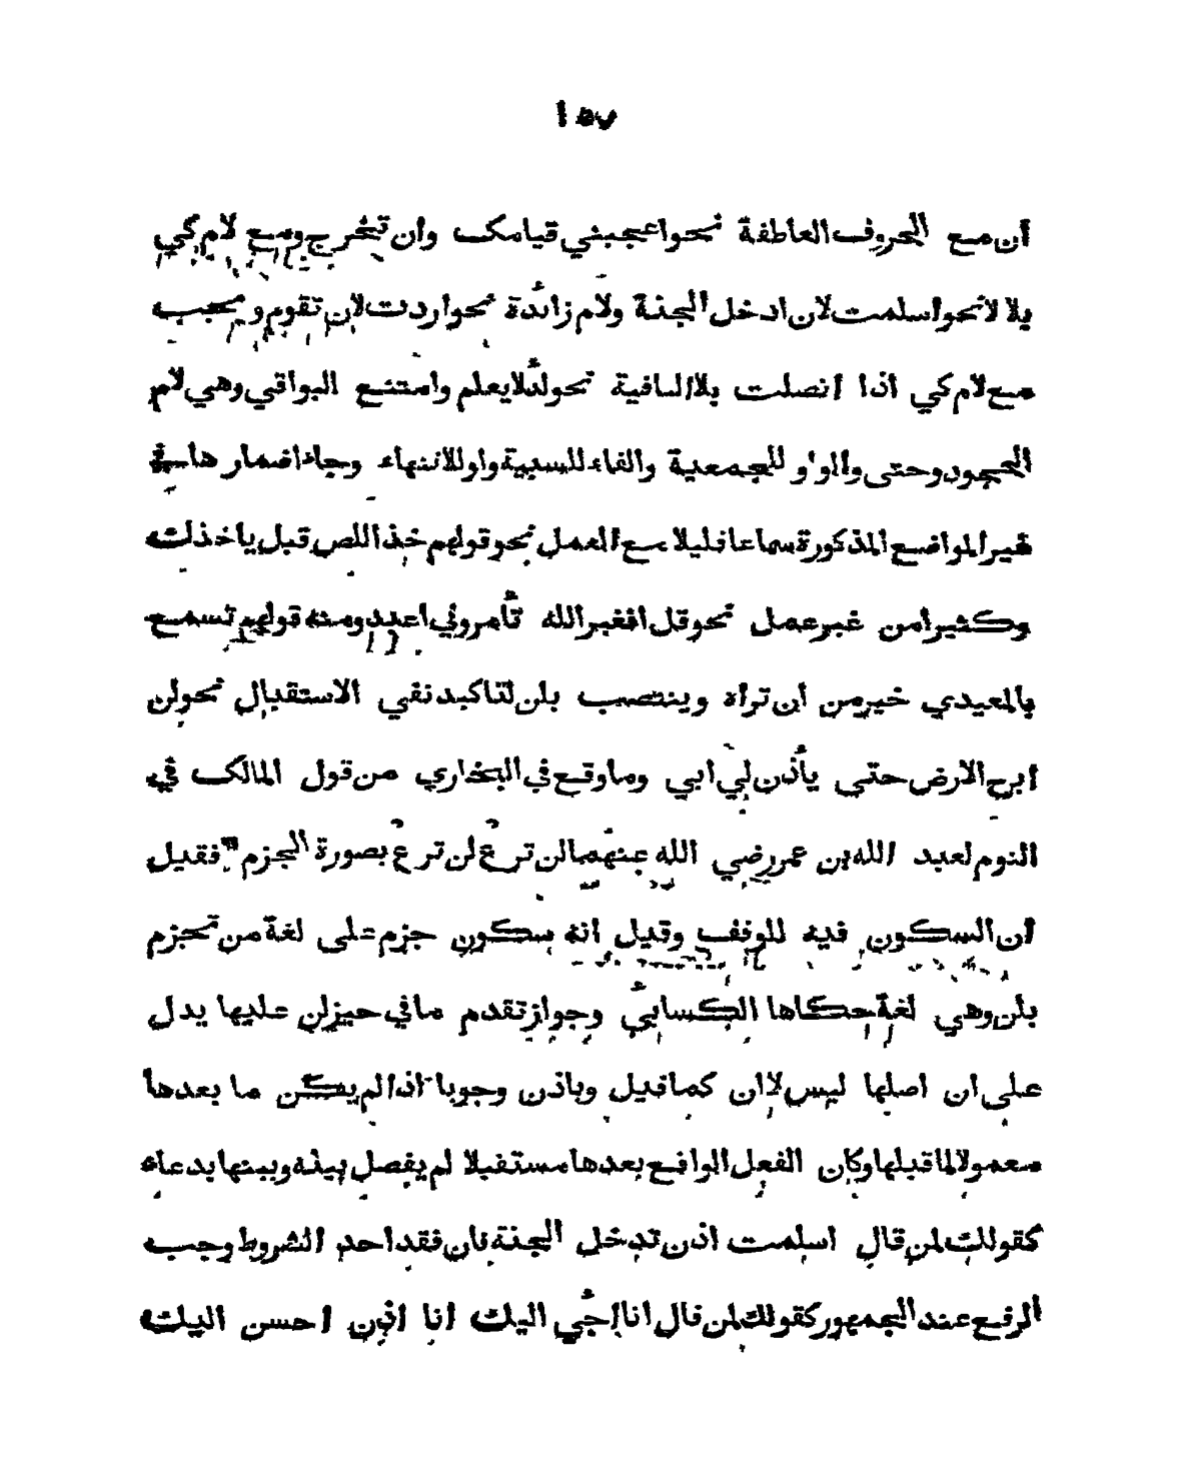 ١٥٧
أن مع الحروف العاطفة نحو اعجبني قيامك وان تخرج ومع لام كي
بلا لا نحو اسلمت لان ادخل الجنة ولام زائدة نحو اردت لان تقوم ويجب
مع لام كي اذا اتصلت بلا النافية نحو لئلا يعلم وامتنع البواقي وهي لام
الجحود وحتى والواو للجمعية والفاء للسببية واو للانتهاء وجاء اضمارها في
غير المواضع المذكورة سماعا قليلا مع العمل نحو قولهم خذ اللص قبل ياخذك
وكثيرا من غير عمل نحو قل افغير الله تأمروني اعبد ومنه قولهم تسمع
بالمعيدي خير من ان تراه وينتصب بلن لتاكيد نفي الاستقبال نحو لن
ابرح الارض حتى يأذن لي ابي وما وقع في البخاري من قول المالك في
النوم لعبد الله بن عمر رضي الله عنهما لن ترع لن ترع بصورة الجزم فقيل
أن السكون فيه للوقف وقيل انه سكون جزم على لغة من تجزم
بلن وهي لغة حكاها الكسائي وجواز تقدم ما في حيز لن عليها يدل
على ان اصلها ليس لا ان كما قيل وباذن وجوبا اذا لم يكن ما بعدها
معمولا لما قبلها وكان الفعل الواقع بعدها مستقبلا لم يفصل بينه وبينها بدعاء
كقولك لمن قال اسلمت اذن تدخل الجنة فان فقد احد الشروط وجب
الرفع عند الجمهور كقولك لمن قال انا اجئ اليك انا اذن احسن اليك